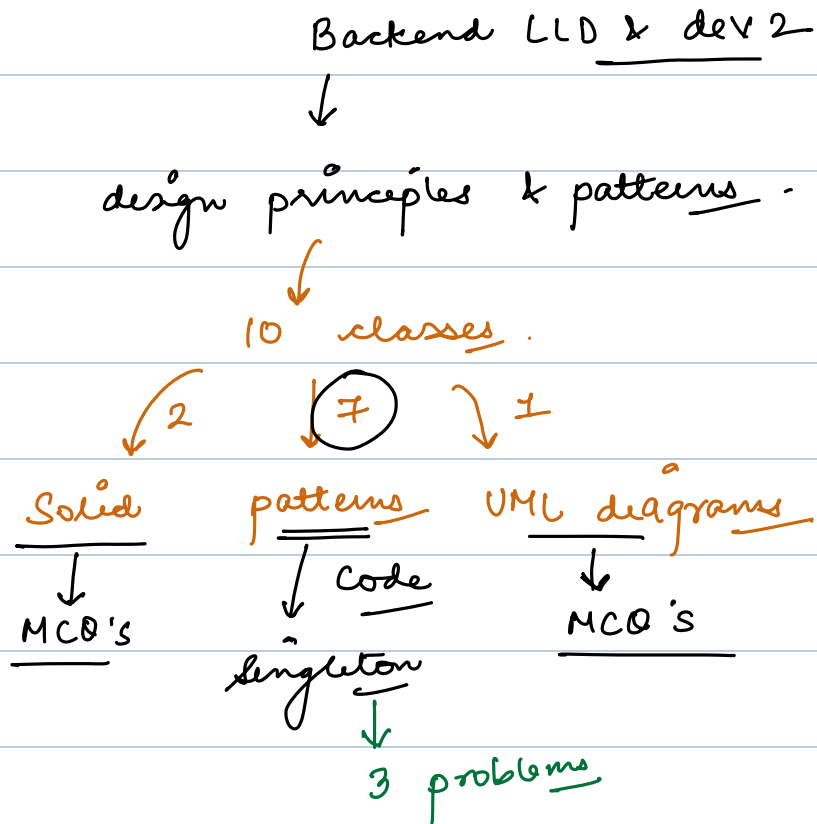 Backend LLD & dev 2
design principles & patterns.
10 classes.
2 7 1
Solid patterns UML diagrams
Code
MCQ's MCQ's
Singleton
3 problems